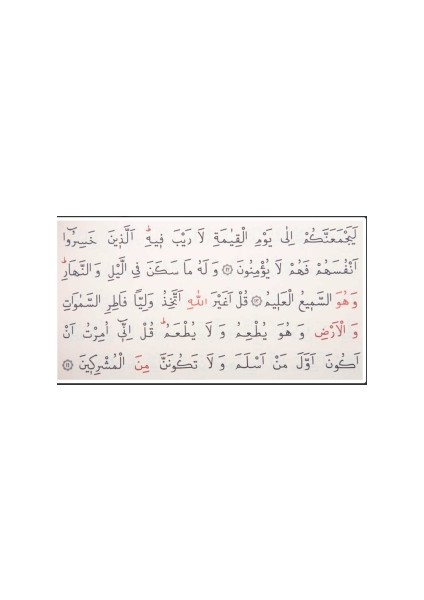 لَيَجْمَعَنَّكُمْ اِلٰى يَوْمِ الْقِيٰمَةِ لَا رَيْبَ ف۪يهِۜ اَلَّذ۪ينَ خَسِرُٓوا
اَنْفُسَهُمْ فَهُمْ لَا يُؤْمِنُونَ ﴿١٢﴾ وَ لَهُ مَا سَكَنَ فِى الَّيْلِ وَ النَّهَارِۜ
وَ هُوَ السَّم۪يعُ الْعَل۪يمُ ﴿١٣﴾ قُلْ اَغَيْرَ اللّٰهِ اَتَّخِذُ وَلِيًّا فَاطِرِ السَّمٰوَاتِ
وَ الْاَرْضِ وَ هُوَ يُطْعِمُ وَ لَا يُطْعَمُۜ قُلْ اِنّ۪ٓى اُمِرْتُ اَنْ
اَكُونَ اَوَّلَ مَنْ اَسْلَمَ وَ لَا تَكُونَنَّ مِنَ الْمُشْرِك۪ينَ ﴿١٤﴾